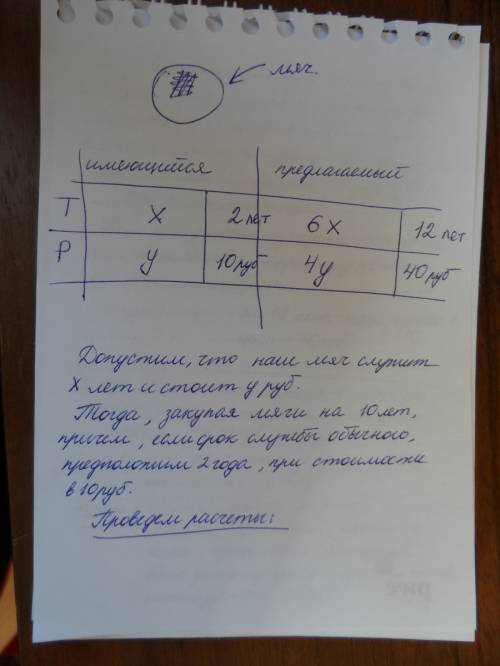 мяч.
имеющийся предлагаемый
Т х 2 лет 6х 12 лет
Р у 10 руб 4у 40 руб
Допустим, что наш мяч служит
х лет и стоит у руб.
Тогда, закупая мячи на 10 лет,
причем, если срок службы обычного,
предположим 2 года, при стоимости
в 10 руб.
Проведем расчеты: